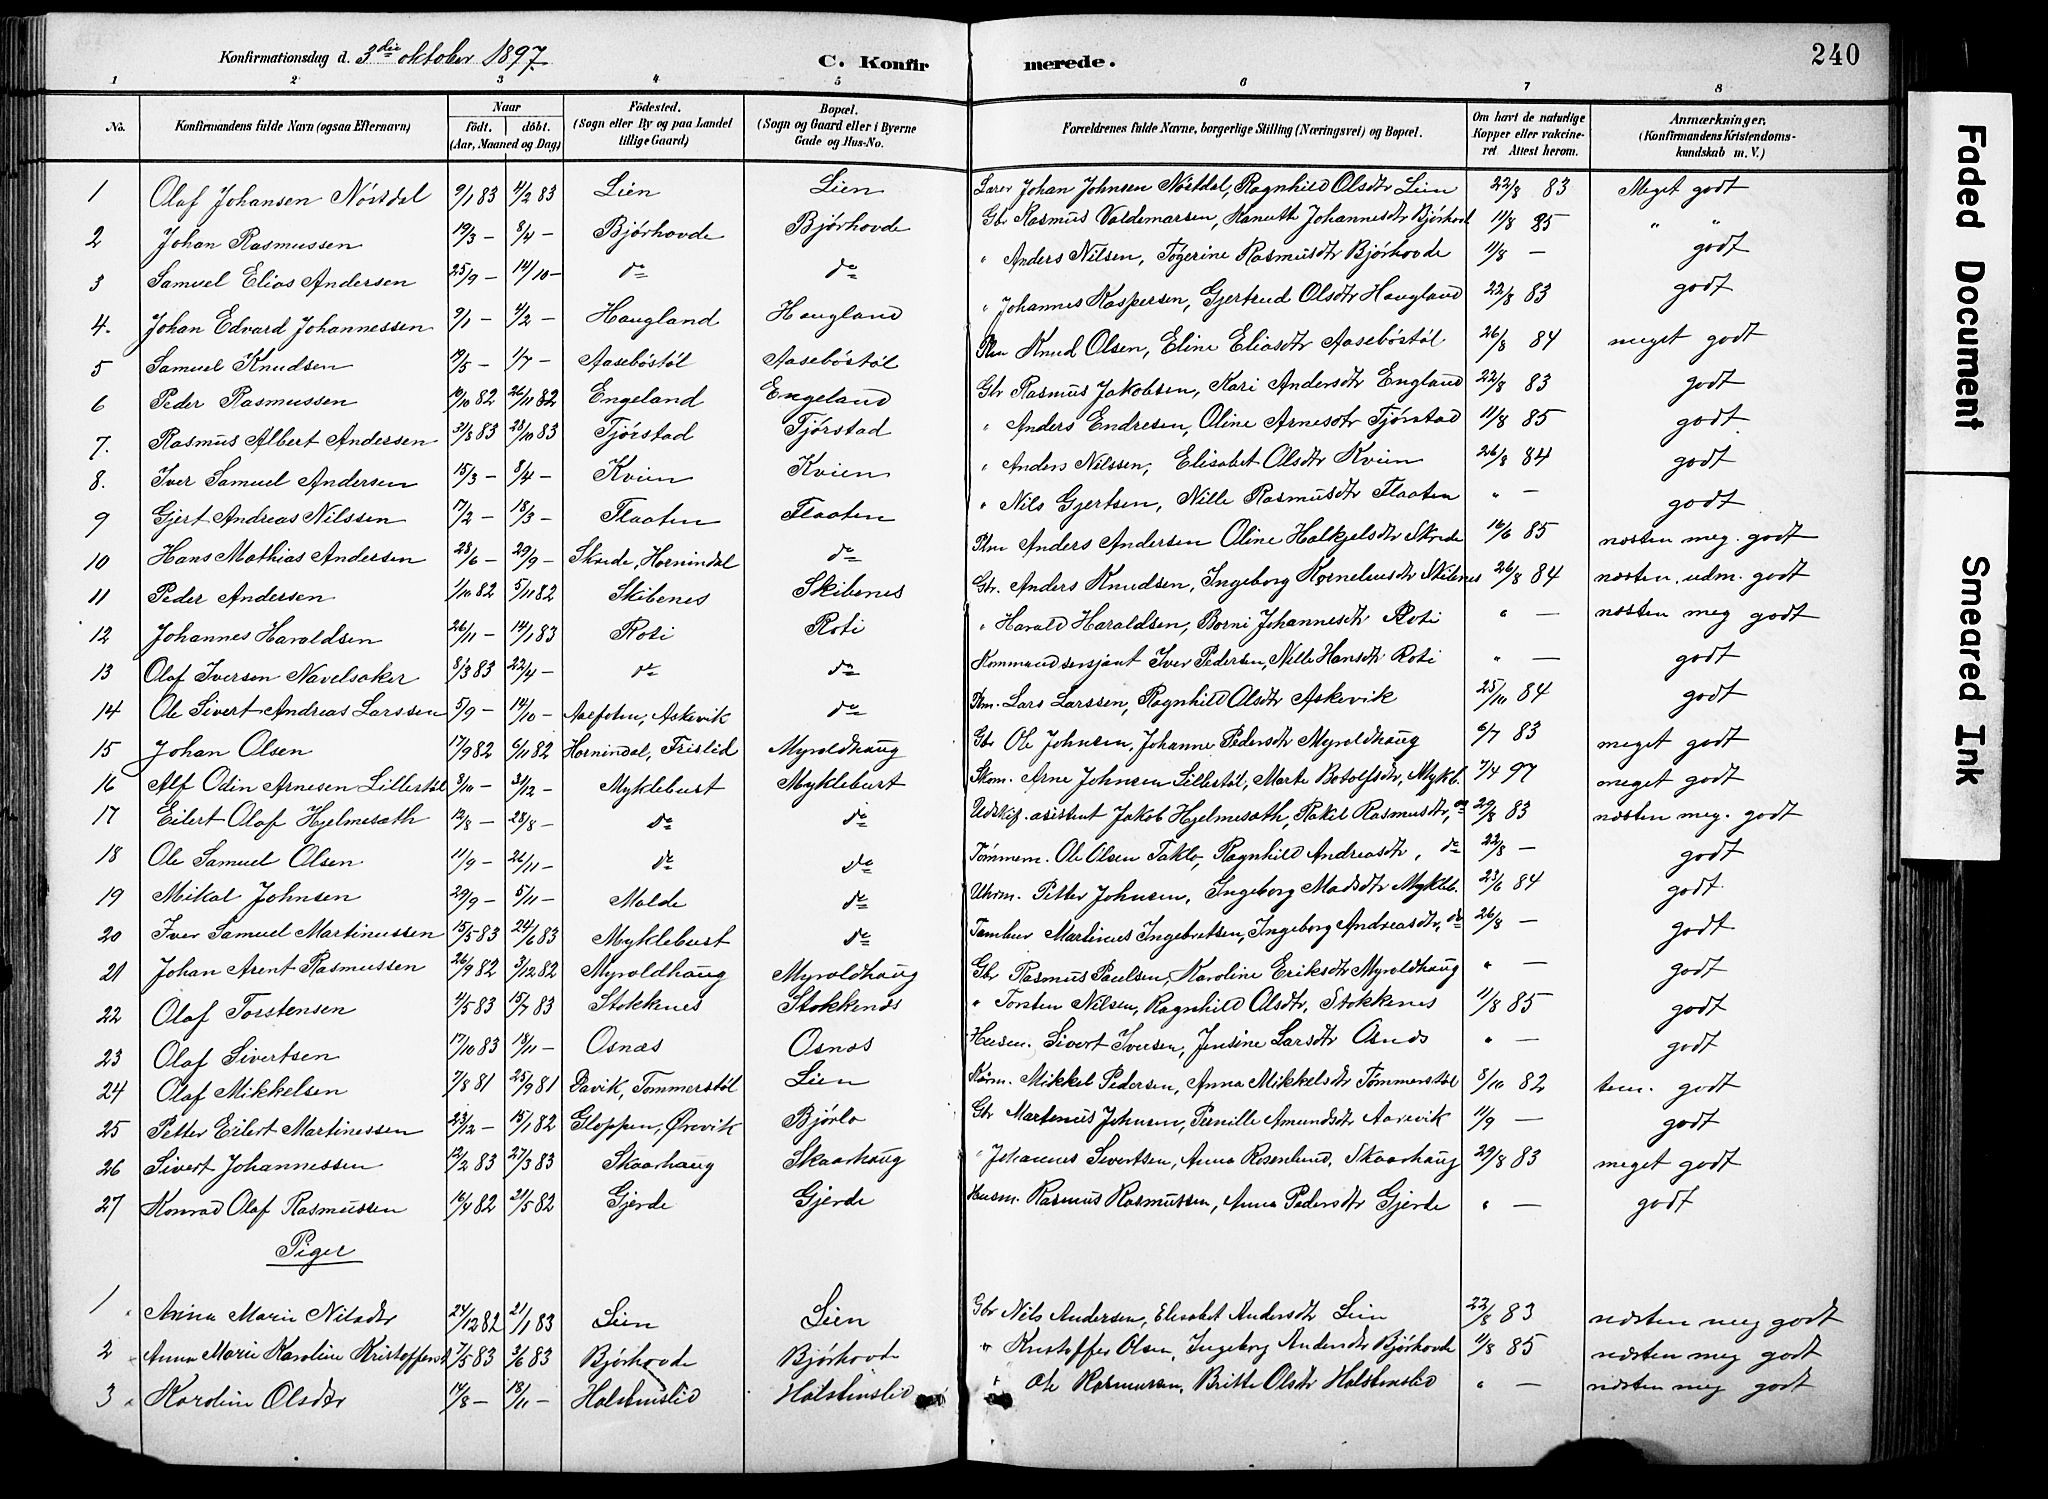 Konfirmationsdag d. 3die oktober 1897. C. Konfirmerede. 240
1 2 3 4 5 6 7 8
No. Konfirmandens fulde Navn (ogsaa Efternavn) Naar födt. döbt. (Aar, Maaned og Dag) Födested. (Sogn eller By og paa Landet tillige Gaard) Bopæl. (Sogn og Gaard eller i Byerne Gade og Hus-No. Forældrenes fulde Navne, borgerlige Stilling (Næringsvei) og Bopæl. Om havt de naturlige Kopper eller vakcineret Attest herom. Anmærkninger, (Konfirmandens Kristendomskundskab m. V.)
1 Olaf Johansen Nöstdal 9/1 83 4/2 83 Lien Lien Johan Johnsen Nöstdal, Ragnhild Olsdtr Lien 22/8 83 Meget godt
2 Johan Rasmussen 19/3 — 8/4 — Bjørhovde Bjørhovde Gbr Rasmus Valdemarsen, Johannesdtr 11/8 85 " "
3 Samuel Elias Andersen 25/9 — 14/10 — do do " Anders Nilsen, Rasmusdtr Bjørhovde 11/8 — godt
4. Johan Edvard Johannessen 9/1 — 4/2 — Haugland Haugland " Johannes Kaspersen, Gjertrud Olsdtr Haugland 22/8 83 godt
5 Samuel Knudsen 19/5 — 1/7 — Aasebøstøl Aasebøstøl Knud Olsen, Eline Eliasdtr Aasebøstøl 26/8 84 meget godt
6 Peder Rasmussen 10/10 82 26/11 82 Engeland Engeland Gbr Rasmus Jakobsen, Kari Andersdtr England 22/8 83 godt
7. Rasmus Albert Andersen 31/8 83 28/10 83 Tjørstad Tjørstad " Anders Endresen, Oline Arnesdtr Tjørstad 11/8 85 godt
8. Iver Samuel Andersen 15/3 — 8/4 — Kvien Kvien " Anders Nilssen, Elisabet Olsdtr Kvien 26/8 84 godt
9 Gjert Andreas Nilssen 17/2 — 18/3 — Flaaten Flaaten " Nils Gjertsen, Nille Rasmusdtr Flaaten " — godt
10 Hans Mathias Andersen 28/6 — 29/9 — Skrede, Hornindal do Anders Andersen Oline Skrede 16/6 85 næsten meg. godt
11 Peder Andersen 1/10 82 5/11 82 Skibenes Skibenes Gbr. Anders Knudsen, Ingeborg Korneliusdtr Skibenes 26/8 84 næsten. udm. godt
12 Johannes Haraldsen 26/11 — 14/1 83 Roti Roti " Harald Haraldsen, Borni Johannesdtr Roti " — næsten meg godt
13 Olaf Iversen Navelsaker 8/3 83 22/4 — do do Iver Pedersen, Nille Hansdtr Roti " — godt
14 Ole Sivert Andreas Larssen 5/9 — 14/10 — Aalfoten, Askevik do Lars Larssen, Ragnhild Olsdtr Askevik 25/10 84 godt
15 Johan Olsen 17/9 82 6/11 82 Hornindal, Tristlid Myroldhaug Gbr Ole Johnsen, Johanne Pedersdtr Myroldhaug 6/7 83 meget godt
16 Alf Odin Arnesen Lillestøl 3/10 — 31/12 — Myklebust Myklebust Skom. Arne Johnsen Lillestøl, Marte Botolfsdtr, Mykb. 7/4 97 meget godt
17 Eilert Olaf Hjelmesæth 12/8 — 28/8 — do do Udskif. asistent Jakob Hjelmesæth, Rakel Rasmusdtr, do 29/8 83 næsten meg. godt
18 Ole Samuel Olsen 11/9 — 26/11 — do do Tømmerm. Ole Olsen Taklo, Ragnhild Andreasdtr, do 22/8 — godt
19 Mikal Johnsen 29/9 — 5/11 — Molde do Uhrm. Petter Johnsen, Ingeborg Madsdtr Mykleb. 23/6 84 godt
20 Iver Samuel Martinussen 15/5 83 24/6 83 Myklebust do Tambur Martinus Ingebretsen, Ingeborg Andreasdtr, do 26/8 — godt
21 Johan Arent Rasmussen 26/9 82 3/12 82 Myroldhaug Myroldhaug Gbr Rasmus Paulsen, Karoline Eriksdtr Myroldhaug " — godt
22 Olaf Torstensen 11/5 83 15/7 83 Stokknes Stokkenes " Torsten Nilsen, Ragnhild Olsdtr, Stokkenes 11/8 85 godt
23 Olaf Sivertsen 17/10 83 18/11 — Osnæs Osnæs Husm. Sivert Iversen, Jensine Larsdtr Osnæs " — godt
24 Olaf Mikkelsen 7/8 81 25/9 81 Davik, Tømmerstøl Lien Mikkel Pedersen, Anna Mikkelsdtr Tømmerstøl 8/10 82 tem. godt
25 Petter Eilert Martinessen 23/12 — 15/1 82 Gloppen, Ørevik Bjørlo Gbr Martinus Johnsen, Pernille Amundsdtr Aarevik 11/9 — godt
26 Sivert Johannessen 12/2 83 27/3 83 Skaarhaug Skaarhaug " Johannes Sivertsen, Anna Rosenlund, Skaarhaug 29/8 83 meget godt
27 Konrad Olaf Rasmussen 16/4 82 21/5 82 Gjerde Gjerde Husm. Rasmus Rasmussen, Anna Pedersdtr Gjerde " — godt
Piger
1 Anna Marie Nilsdtr 24/12 82 21/1 83 Lien Lien Gbr Nils Andersen, Elisabet Andersdtr Lien 22/8 83 næsten meg godt
2 Anna Marie Karoline 7/5 83 3/6 83 Bjørhovde Bjørhovde " Kristoffer Olsen, Ingeborg Andersdtr Bjørhovde 11/8 85 næsten meg godt
3 Karoline Olsdtr 14/8 — 18/11 — Holstenslid Holstenslid " Ole Rasmussen, Britte Olsdtr Holstenslid " — næsten meg godt
Faded Document
Smeared Ink